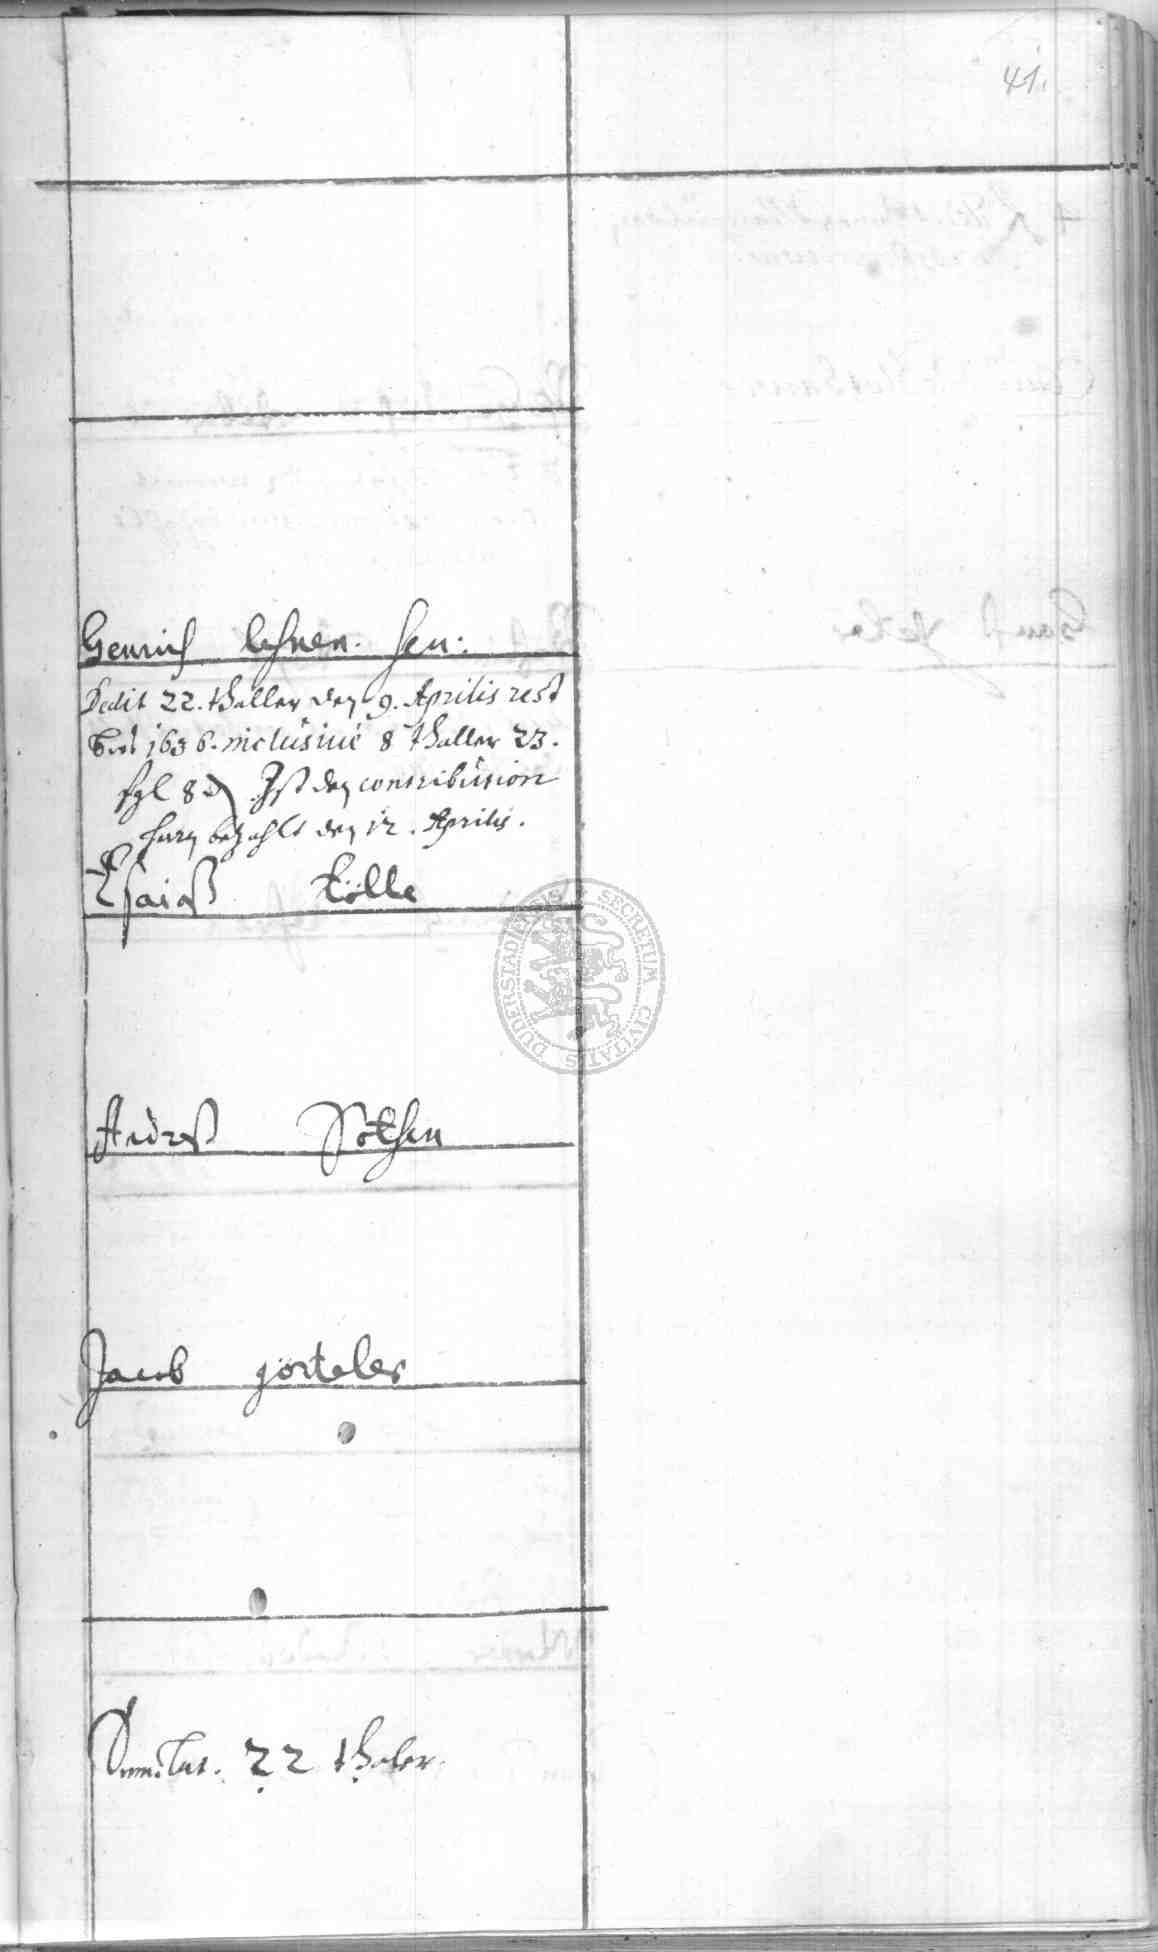 41.
Henrich lehnen. sen:
Dedit 22. thaller den 9. Aprilis rest
bis 1636. inclusiué 8 thaller 23.
sgl 8 d Ist den contribution
herrn bezahlt den 12. Aprilis.
Esaiaß Költe
SECRETUM CIVITATIS DUDERSTADIENSIS
Andreß Pöthen
Jacob görteler
Summa lat. 22 thaler.